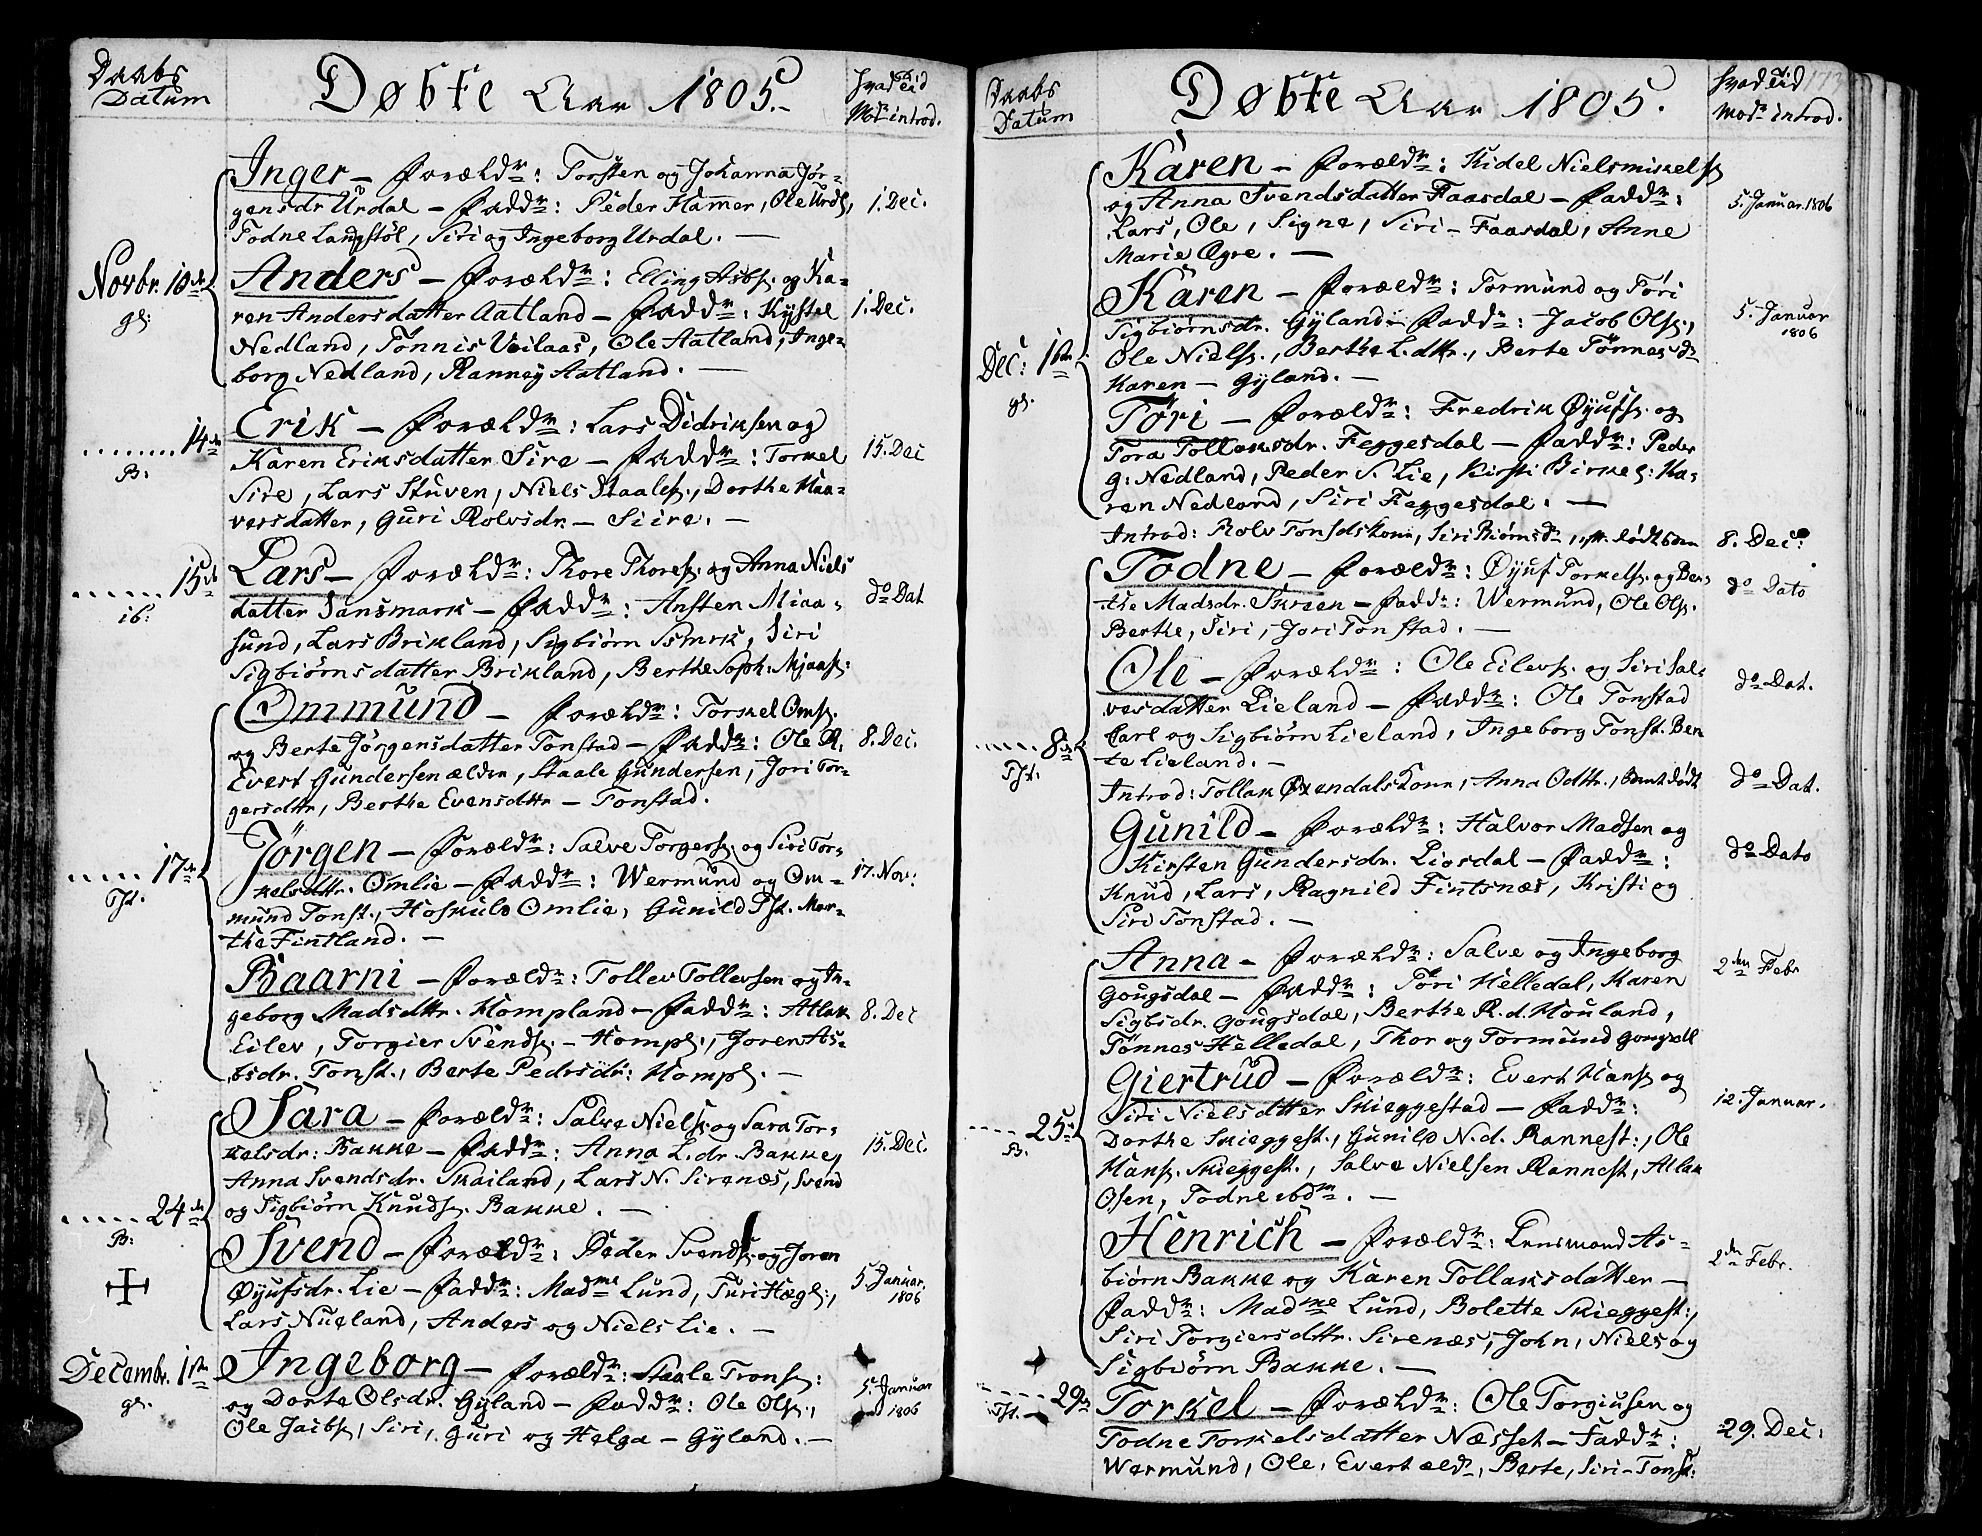 Daabs
Datum
Døbte Aar 1805.
Hvad Tid
Modr introd.
Inger — Forældr: Torsten og Johanna Jör-
gensdr Urdal — Faddr: Peder Hamer, Ole Urdl,
Todne Langstöl, Siri og Ingeborg Urdal. —
1. Dec.
Novbr. 10de
gl:
Anders — Forældr: Elling Asbs. og Ka-
ren Andersdatter Aatland — Faddr: Kystel
Nedland, Tönnis Veilaas, Ole Aatland, Inge-
borg Nedland, Ranney Aatland. —
1. Dec.
14de
B:
Erik — Forældr: Lars Didriksen og
Karen Eriksdatter Sire — Faddr: Torkel
Sire, Lars Stuven, Niels Staales., Dorthe Haa-
versdatter, Guri Rolvsdr. — Siire. —
15. Dec
15de
ib:
Lars — Forældr: Thore Thores. og Anna Niels
datter Sansmark — Faddr: Ansten Miaa-
sund, Lars Brikland, Sigbiørn Ssmrk, Siri
Sigbiørnsdatter Brikland, Berthe Soph: Mjaas:
do Dat
Ommund — Forældr: Torkel Oms.
og Berte Jörgensdatter Tonstad — Faddr: Ole R.
Evert Gundersen ældr, Staale Gundersen, Jori Tor-
gersdttr, Berthe Evensdttr — Tonstad.
8. Dec.
17de
Tst.
Jörgen — Forældr: Salve Torgers. og Siri Tor-
kelsdttr. Omlie — Faddr: Wermund og Om-
mund Tonst., Hoskuld Omlie, Gunild Tst. Mar-
the Fintland. —
17. Nov:
Baarni — Forældr: Tollev Tollevsen og In-
geborg Madsdttr. Hompland — Faddr: Atlak
Eilev, Torgier Svends. — Hompl., Joren As-
bsdr. Tonst., Berte Pedrsdr: Hompl. —
8. Dec
Sara — Forældr: Salve Niels. og Sara Tor-
kelsdr: Bakke — Faddr: Anna L. dr. Bakke,
Anna Svendsdr. Skailand, Lars N. Sirenæs, Svend
og Sigbiørn Knuds. Bakke. —
15. Dec.
24de
B:
Svend — Forældr: Peder Svends. og Joren
Øyufsdr. Lie — Faddr: Madme Lund, Turi Hægl.,
Lars Nueland, Anders og Niels Lie. —
5. Januar.
1806
Decembr. 1ste
gl.
Ingeborg — Forældr: Staale Trons:
og Dorte Olsdr. Gyland — Faddr: Ole Ols.,
Ole Jacbs, Siri, Guri og Helga — Gyland. —
5. Januar
1806
Daabs
Datum
Døbte Aar 1805.
Hvad Tid
Modr introd.
Karen — Forældr: Kidel Nielsmikels
og Anna Svendsdatter Faasdal — Faddr:
Lars, Ole, Signe, Siri — Faasdal, Anne
Marie Øgre. —
5. Januar. 1806
Karen — Forældr: Tormund og Töri
Sigbiørnsdr. Gyland — Faddr: Jacob Ols.,
Ole Niels., Berthe L. dttr., Berte Tönnesdr
Karen — Gyland. —
5. Januar
1806
Dec: 1ste
gl.
Töri — Forældr: Fredrik Øyufs. og
Tora Tollaksdr. Feggesdal — Faddr: Peder
G: Nedland, Peder S. Lie, Kirsti Birkel: Ka-
ren Nedland, Siri Feggesdal. —
Introd: Rolv Tonsdskone, Siri Biørnsdr, dødt barn
8. Dec:
Todne — Forældr: Øyuf Torkels. og Ber-
the Madsdr. Skreen — Faddr: Wermund, Ole Ols.
Berthe, Siri, Jori Tonstad. —
do Dato
Ole — Forældr: Ole Eilevs. og Siri Sal-
vesdatter Lieland — Faddr: Ole Tonstad
Carl og Sigbiørn Lieland, Ingeborg Tonst. Ben
te Lieland. —
do Dat.
8de
Tst.
Introd: Tollak Øxendals Kone, Anna Odttr., Barnet dødt
do Dat.
Gunild — Forældr: Halvor Madsen og
Kirsten Gundersdr. Liosdal — Faddr:
Knud, Lars, Ragnild Fintsnæs, Kristi og
Siri Tonstad. —
do Dato
Anna — Forældr: Salve og Ingeborg
Gougsdal — Faddr: Töri Helledal, Karen
Sigbsdr. Gougsdal, Berthe R. d. Houland,
Tönnes Helledal, Thor og Tormund Gougsdl
2den Febr
25de
B.
Giertrud — Forældr: Evert Hans. og
Siri Nielsdtter Skieggestad — Faddr:
Dorthe Skieggest., Gunild N. d. Rannest:, Ole
Hans. Skieggest., Salve Nielsen Rannest, Atlak
Osen, Todne ibdm. —
12. Januar.
Henrich — Forældr: Lensmand As-
biørn Bakke og Karen Tollaksdatter —
Faddr: Madme Lund, Bolette Skieggest.,
Siri Torgiersdttr. Sirenæs, John, Niels og
Sigbiørn Bakke. —
2den Febr.
29de
Tst. —
Torkel — Forældr: Ole Torgiusen og
Todne Torkelsdatter Næsset — Faddr:
Wermund, Ole, Evert ældr, Berte, Siri — Tonst.
29. Dec: